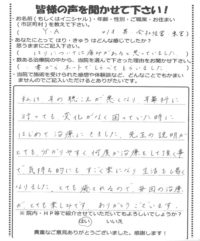 皆様の声を聞かせて下さい!
お名前(もしくはイニシャル)・年齢・性別・ご職業・お住まい
(市区町村)を教えて下さい。
Y・A
あなたにとって はり・きゅう とはどんな感じでしたか?
思うままにご記入下さい。
はりについて痛いのかなと思っていました
数ある治療院の中から、当院を選んで下さった理由をお聞かせ下さい。
当院で施術を受けられた感想や体験談など、どんなことでもかまい
ませんのでご記入いただけると嬉しいです。
私は耳の聴こえが悪くなり耳鼻科に
行っても変化がなく困っていた時に
はじめて治療にきました。先生の説明が
とても分かりやすく何度か治療をして頂く事
で気持ち的にもすごく楽になり生活も楽に
なりました。とても癒されるので毎回の治療
がとても楽しみです ありがとうございます。
※院内・HP等で紹介させていただいてもよろしいでしょうか?
はい いいえ
貴重なご意見ありがとうございました。感謝します!